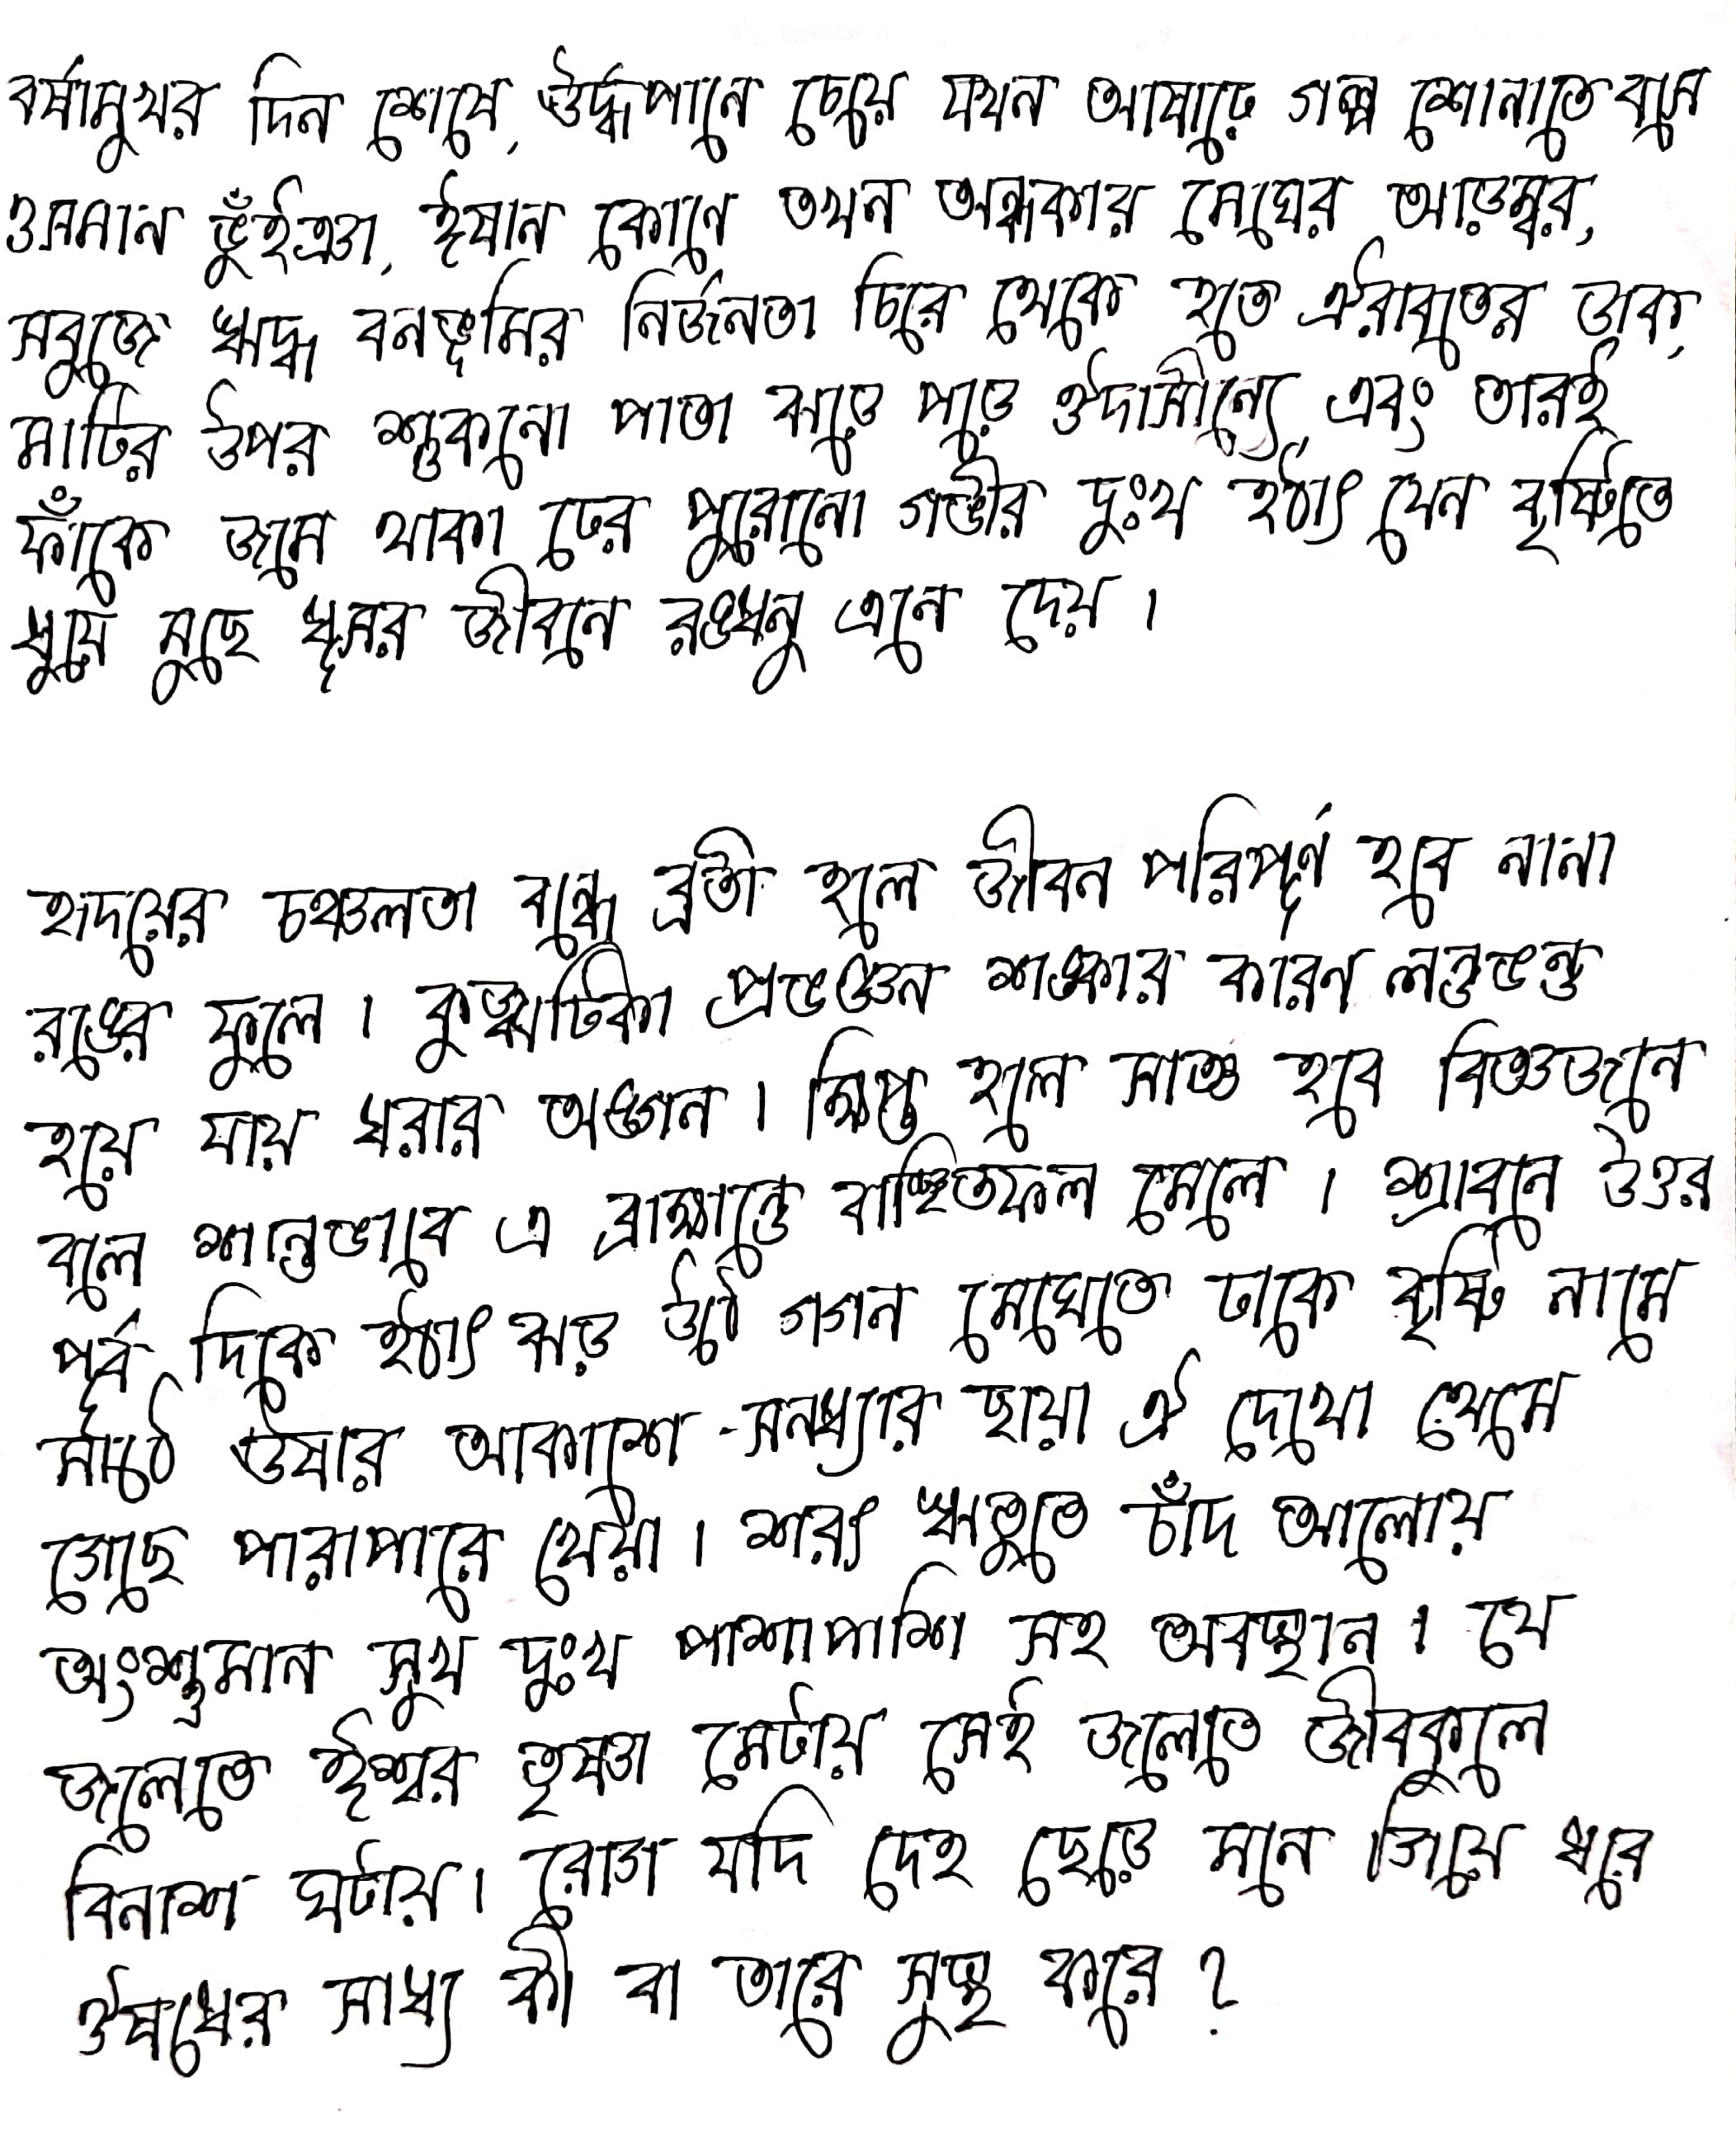 বর্ষামুখর দিন শেষে, ঊর্দ্ধপানে চেয়ে যখন আষাঢ়ে গল্প শোনাতে বসে
ওসমান ভুঁইঞা, ঈষান কোণে তখন অন্ধকার মেঘের আড়ম্বর,
সবুজে ঋদ্ধ বনভূমির নির্জনতা চিরে থেকে হতে ঐরাবতের ডাক,
মাটির উপর শুকনো পাতা ঝড়ে পড়ে ঔদাসীন্যে এবং তারই
ফাঁকে জমে থাকা ঢের পুরোনো গভীর দুঃখ হঠাৎ যেন বৃষ্টিতে
ধুয়ে মুছে ধূসর জীবনে রঙধনু এনে দেয়।
হৃদয়ের চঞ্চলতা বন্ধে ব্রতী হলে জীবন পরিপূর্ণ হবে নানা
রঙের ফুলে। কুজ্ঝটিকা প্রভঞ্জন শঙ্কার কারন লন্ডভন্ড
হয়ে যায় ধরার অঙ্গন। ক্ষিপ্ত হলে সাঙ্গ হবে বিজ্ঞজনে
বলে শান্তভাবে এ ব্রাহ্মান্ডে বাঞ্ছিতফল মেলে। শ্রাবনে উত্তর
পূর্ব দিকে হঠাৎ ঝড় উঠে গগন মেঘেতে ঢাকে বৃষ্টি নামে
মাঠে ঊষার আকাশে সনধ্যার ছায়া ঐ দেখো থেমে
গেছে পারাপারে খেয়া। শরৎ ঋতুতে চাঁদ আলোয়
অংশুমান সুখ দুঃখ পাশাপাশি সহ অবস্থান। যে
জলেতে ঈশ্বর তৃষ্ণা মেটায় সেই জলেতে জীবকুলে
বিনাশ ঘটায়। রোগ যদি দেহ ছেড়ে মনে গিয়ে ধরে
ঔষধের সাধ্য কী বা তারে সুস্থ করে?